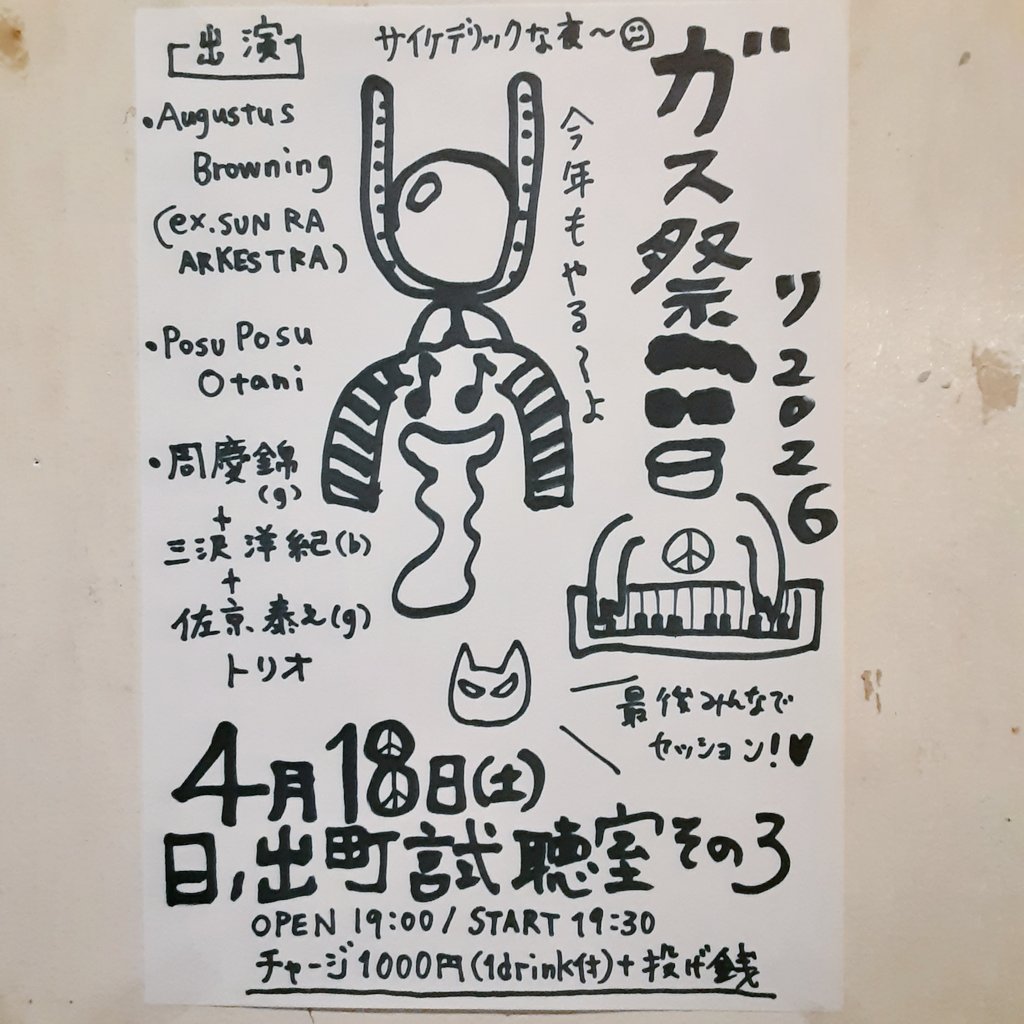 サイケデリックな夜〜
ガス祭り2026
今年もやる〜よ
出演
・Augustus
Browning
(ex.SUN RA
ARKESTRA)
・Posu Posu
Otani
・周慶錦
(g)
+
三沢洋紀(b)
+
佐京泰之(g)
トリオ
最後みんなで
セッション!♥
4月18日(土)
日ノ出町試聴室その3
OPEN 19:00/START 19:30
チャージ1000円(1drink付)+投げ銭